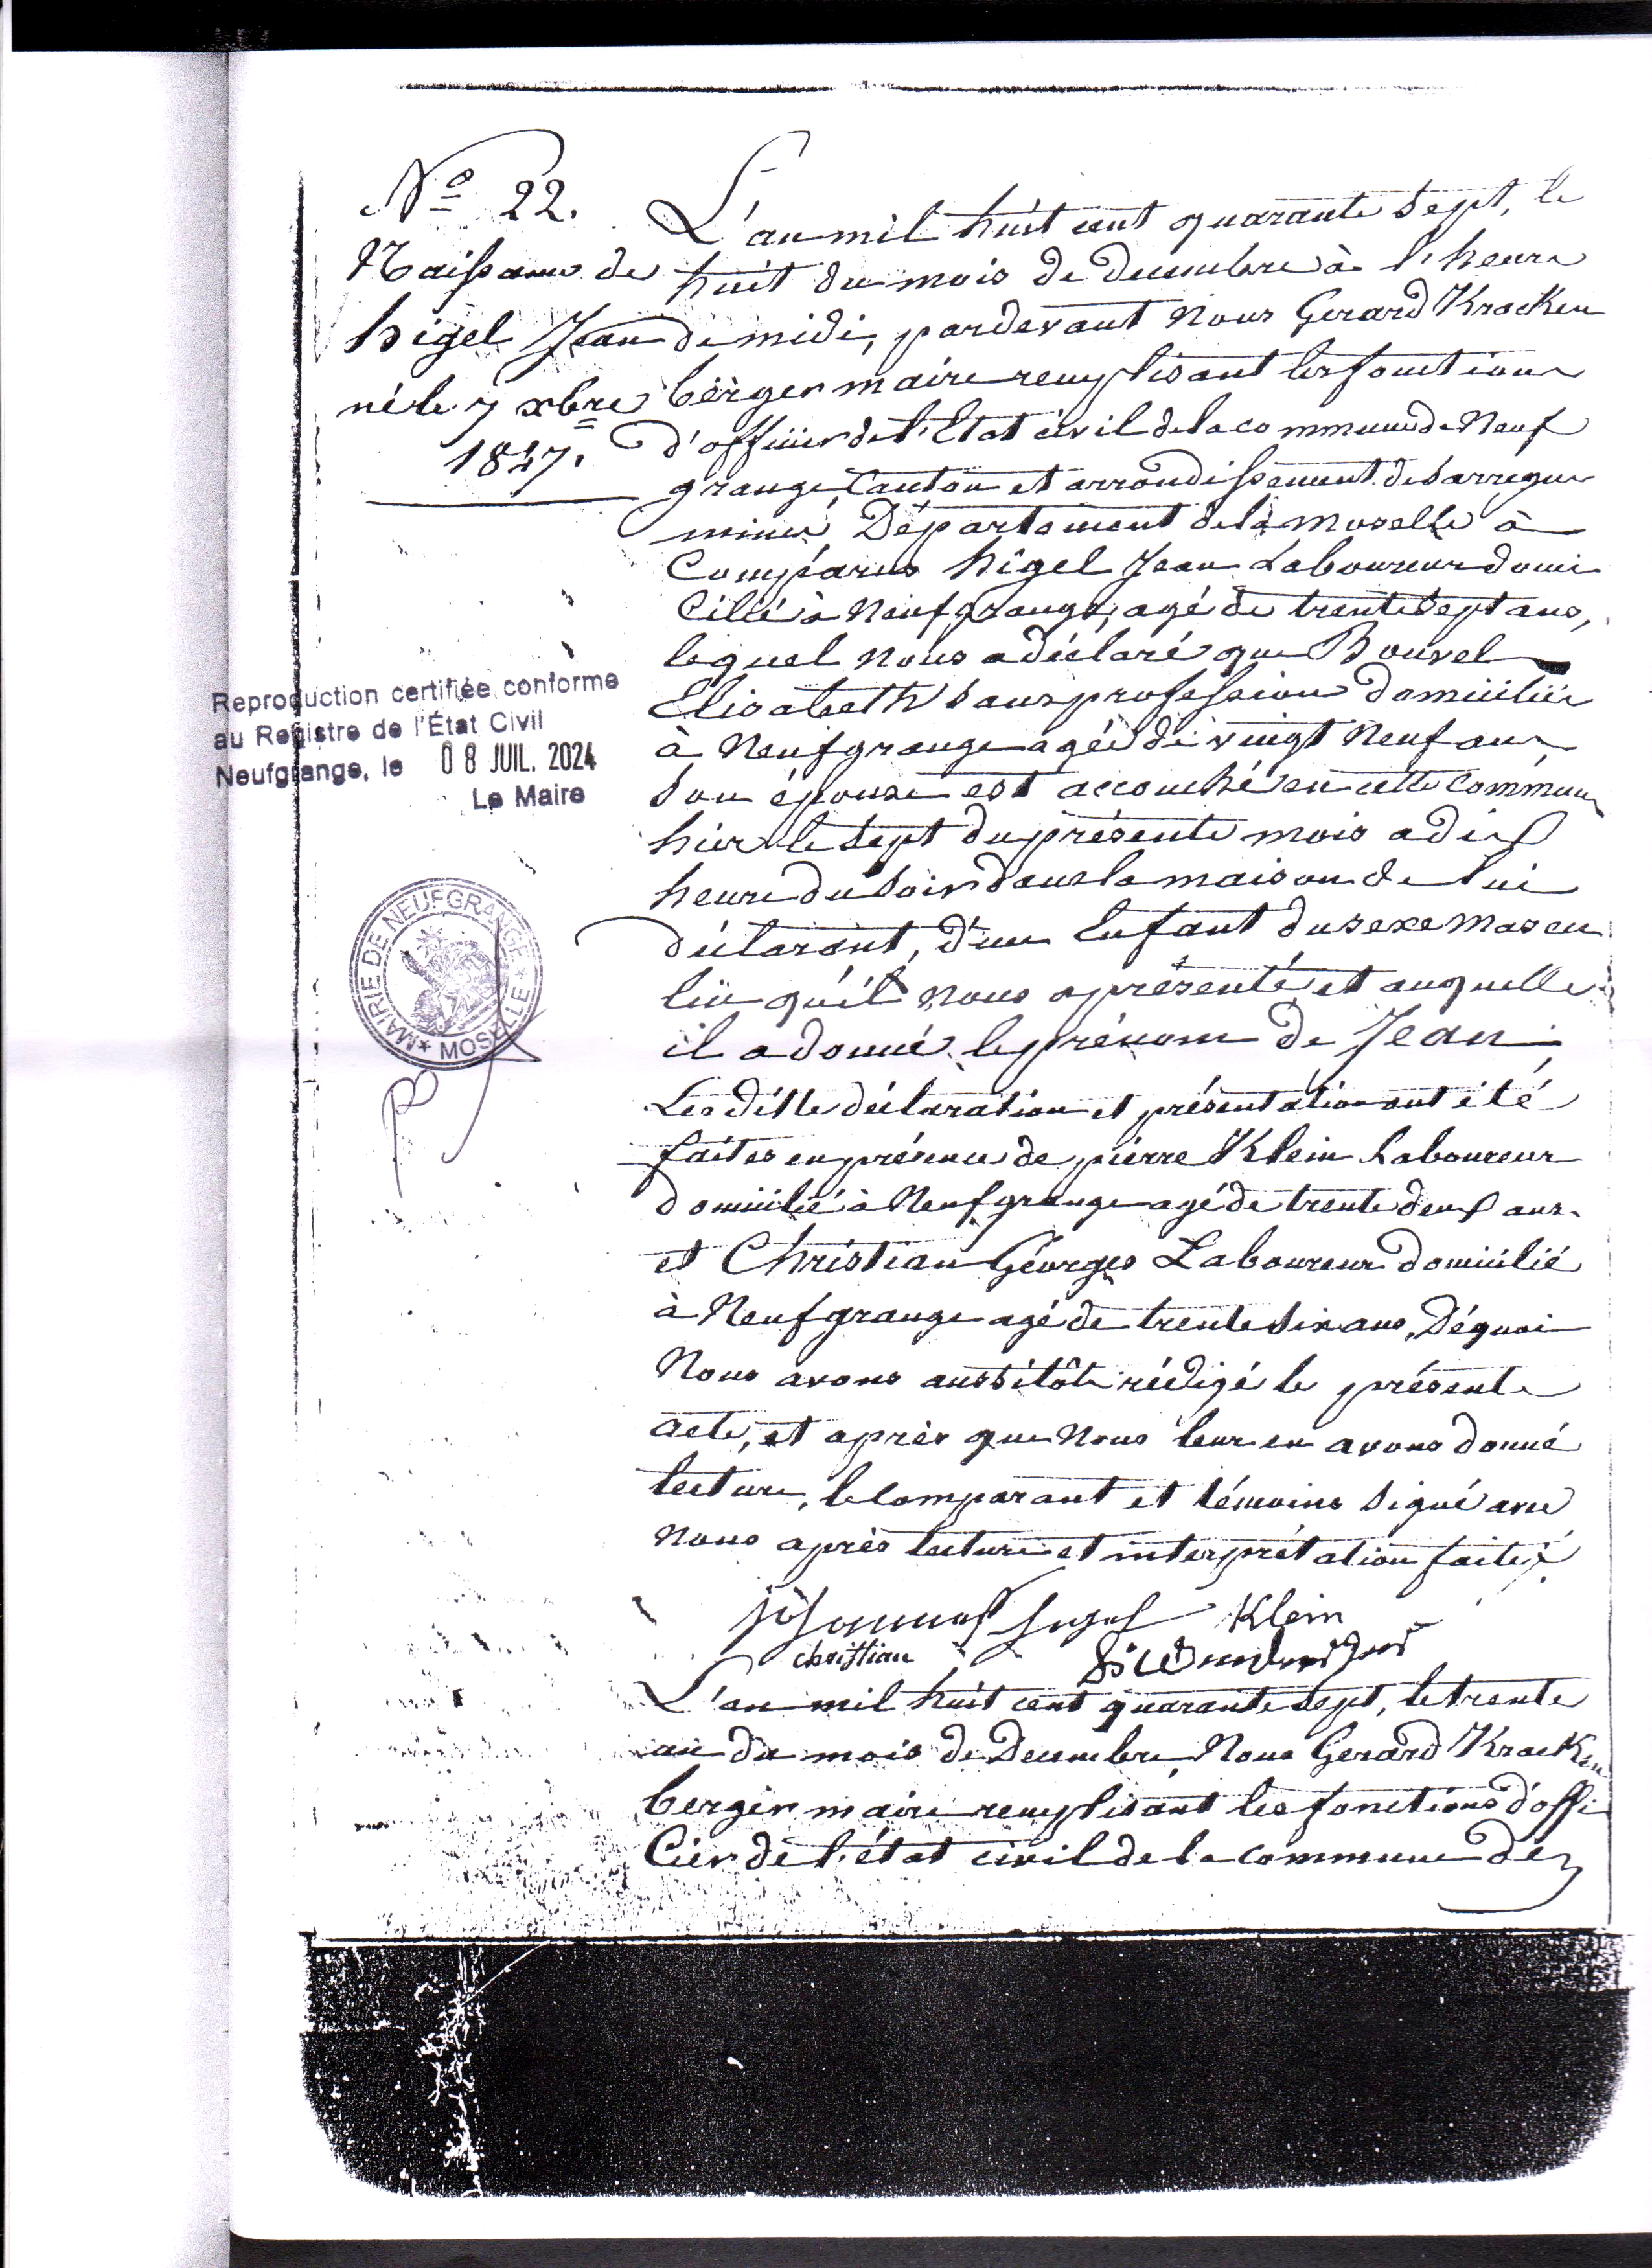 N° 22.
Naissance de
higel Jean
né le 7 xbre
1847.
L'an mil huit cent quarante sept, le
huit du mois de decembre à l'heure
de midi, pardevant nous Gerard Kracken
berger maire remplisant les fonctions
d'officier de l'Etat civil de la commune de Neuf
grange, Canton et arrondissement de Sarregue
mines, Département de la moselle à
Comparus higel Jean Laboureur domi
cilié à Neufgrange, agé de trente sept ans,
lequel nous a déclaré que Bouvel
Elisabeth sans profession domiciliée
à Neufgrange agée de vingt neuf ans
son épouse est accouché en cette commune
hier le sept du présente mois a dix
heure du soir dans la maison de lui
déclarant, d'un Enfant du sexe mascu
lin qu'il nous a présenté et auquelle
il a donné le prénom de Jean;
Les ditte déclaration et présentation ont été
faites en présence de pierre Klein Laboureur
domicilié à Neufgrange agé de trente deux ans.
et Christian Géorges Laboureur domicilié
à Neufgrange agé de trente six ans, Déquoi
Nous avons aussitôt rédigé le présente
acte, et après que Nous leur en avons donné
lecture, le comparant et témoins signé avec
nous après lecture et interprétation faite.
Klein
christian
L'an mil huit cent quarante sept, le trente
un du mois de Decembre, Nous Gerard Kracken
berger maire remplisant les fonctions d'offi
cier de l'état civil de la commune de
Reproduction certifiée conforme
au Registre de l'État Civil
Neufgrange, le 08 JUIL. 2024
Le Maire
MAIRIE DE NEUFGRANGE
* MOSELLE *